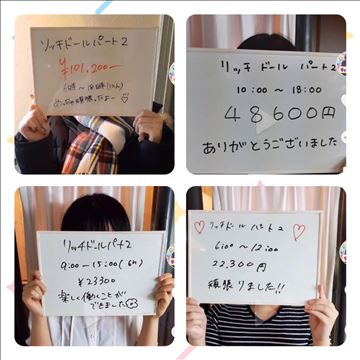 リッチドールパート2
¥101,200ー
めっちゃ頑張ったよー♡
リッチドール パート2
10:00 ～ 18:00
48600円
ありがとうございました
リッチドールパート2
9:00 ー 15:00(6h)
¥23300
楽しく働くことが
できました
リッチドール パート2
6:00 ～ 12:00
22,300円
頑張りました!!